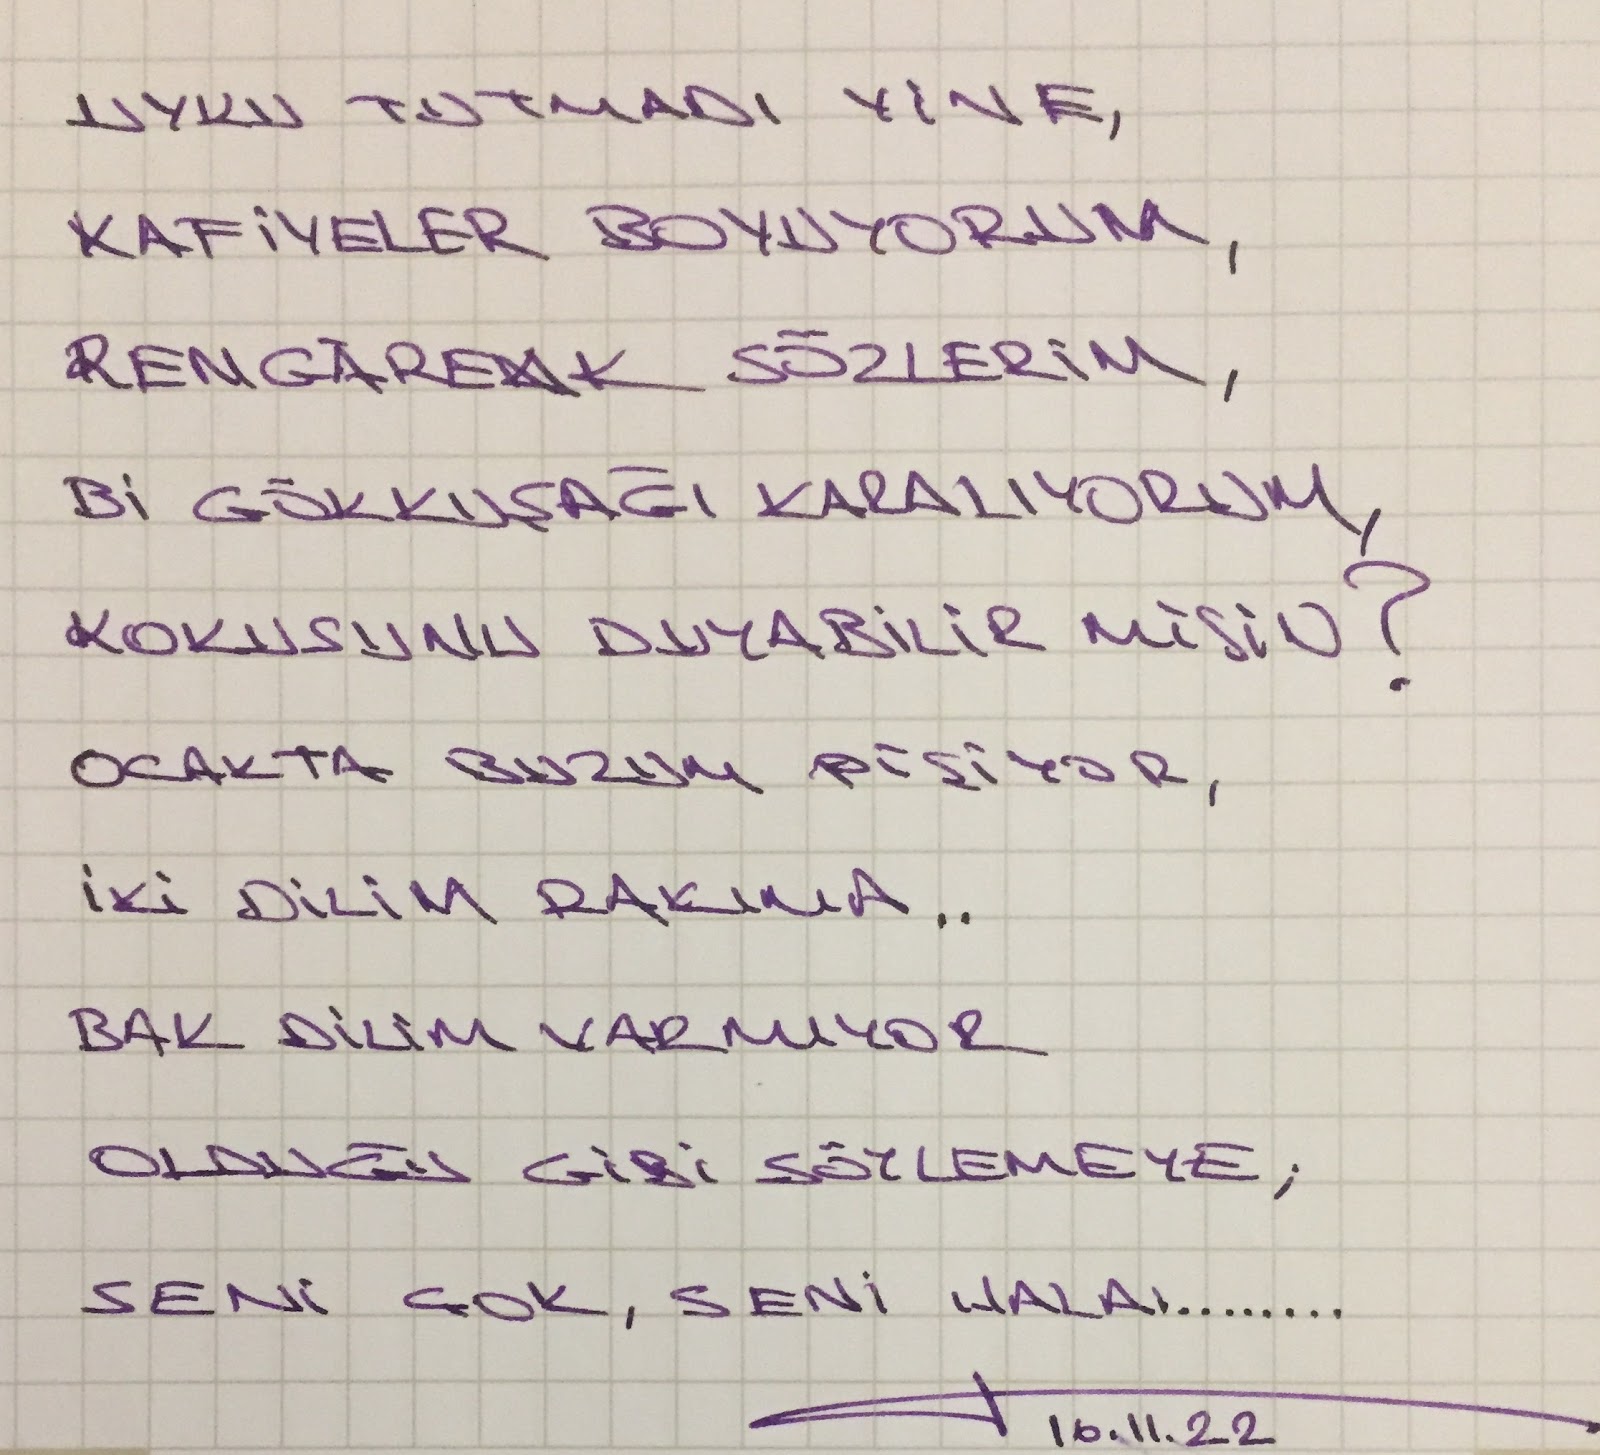 UYKU TUTMADI YİNE,
KAFİYELER BOYUYORUM,
RENGÂRENK SÖZLERİM,
Bİ GÖKKUŞAĞI KARALIYORUM,
KOKUSUNU DUYABİLİR MİSİN?
OCAKTA BUZUM PİŞİYOR,
İKİ DİLİM RAKIMA..
BAK DİLİM VARMIYOR
OLDUĞU GİBİ SÖYLEMEYE;
SENİ ÇOK, SENİ HALA........
16.11.22